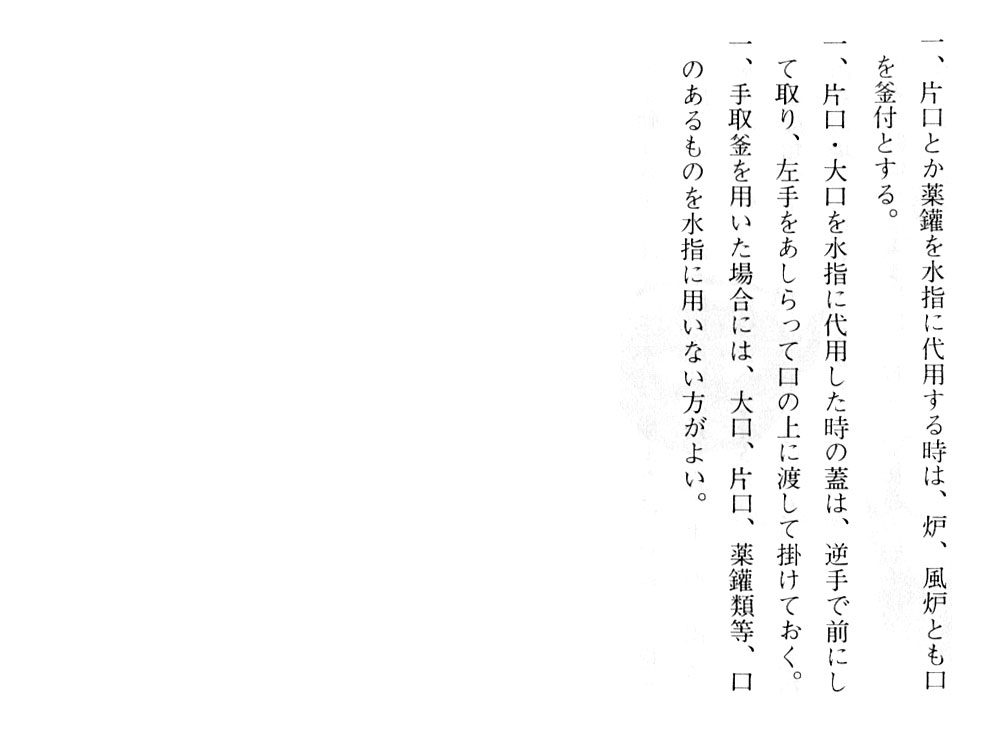 一、片口とか薬鑵を水指に代用する時は、炉、風炉とも口
を釜付とする。
一、片口・大口を水指に代用した時の蓋は、逆手で前にし
て取り、左手をあしらって口の上に渡して掛けておく。
一、手取釜を用いた場合には、大口、片口、薬鑵類等、口
のあるものを水指に用いない方がよい。